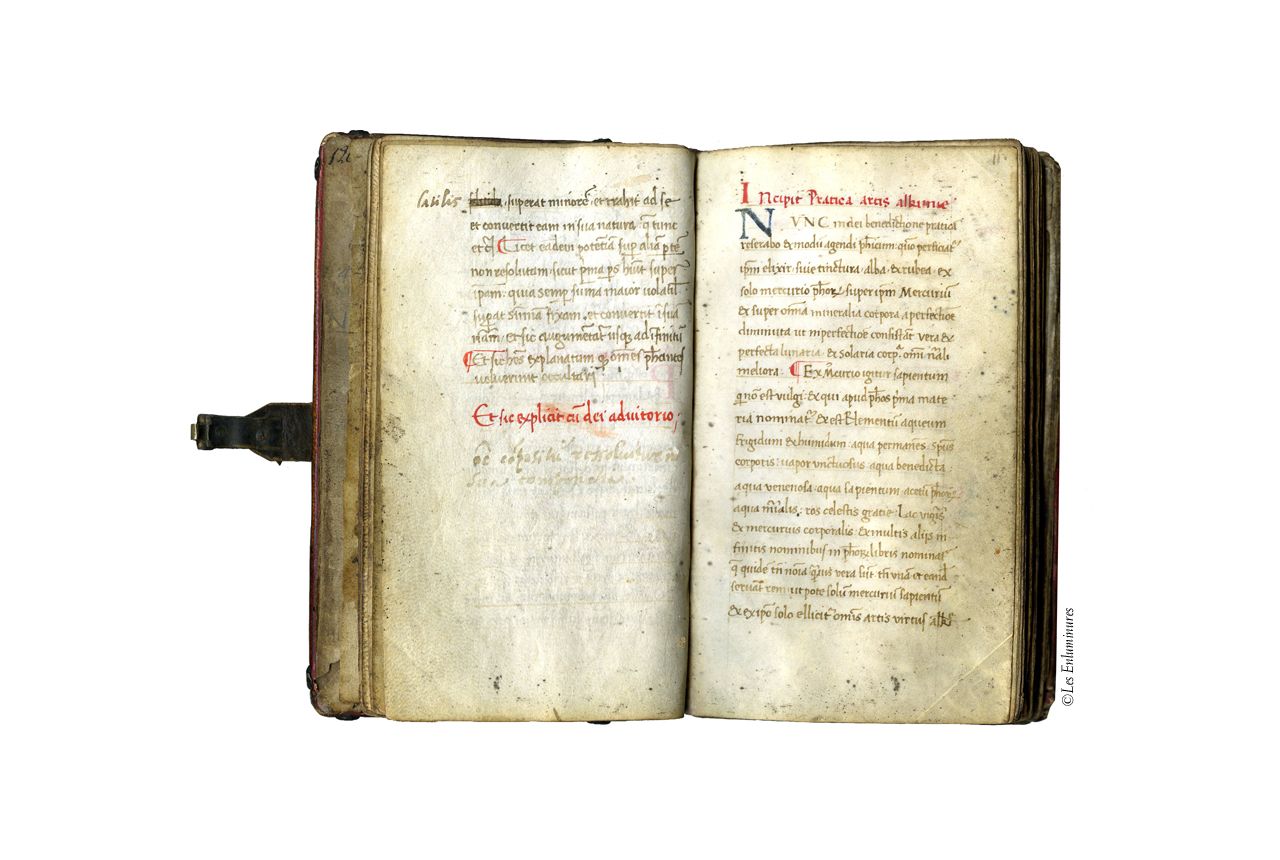 12
satilis superat minorẽ et trahit ad se
et convertit eam in sua natura q̃ tunc
et c̃ Licet eadem potẽtia sup̱ alia p̱tẽ
non resolutam sicut p̃ma p̱s hũit super
ipam. quia semp̱ sũma maior volatil
sup̱at sũmã fixam. et convertit ĩ suã
nãm. et sic augmẽtat̃ usq̱ ad ĩfinitũ
Et sic hẽs explanatum q̱ omẽs ph̃i antos
voluerint occultari
Et sic explicit cũ dei adiutorio
cõpositũ resolut
sua corpora
11
Incipit Pratica artis alkimie
NVNC in dei benedictione pratica
reserabo & modũ agendi ph̃icum. quo perficiat̃
ip̃m elixir. sive tinctura. alba. & rubea. ex
solo mercurio ph̃oꝝ. super ip̃m Mercuriũ
& super om̃ia mineralia corpora. a perfectiõe
diminuta ut in perfectiõe consistãt vera &
perfecta lunaria. & solaria corp̱a om̃i nãli
meliora. Ex Mẽcurio igitur sapientum
qui nõ est vulgi. & qui apud ph̃os p̃ma mate
ria nominat̃. & est Elementũ aqueum
frigidum & humidum. aqua permanẽs. sp̃us
corporis. vapor vnctuosus. aqua benedicta.
aqua venenosa. aqua sapientum. acetũ ph̃oꝝ
aqua mĩalis. ros celestis gratie. Lac virgis
& mercurius corporalis. & multis alijs in
finitis nominibus in ph̃oꝝ libris nominat̃
q̃ quidẽ tñ noĩa q̃mvis vera sint tñ vnã et eãd
servãt rem. ut pote solũ mercuriũ sapientũ
& ex ip̃o solo ellicit̃ omĩs artis virtus alk
©Les Enluminures